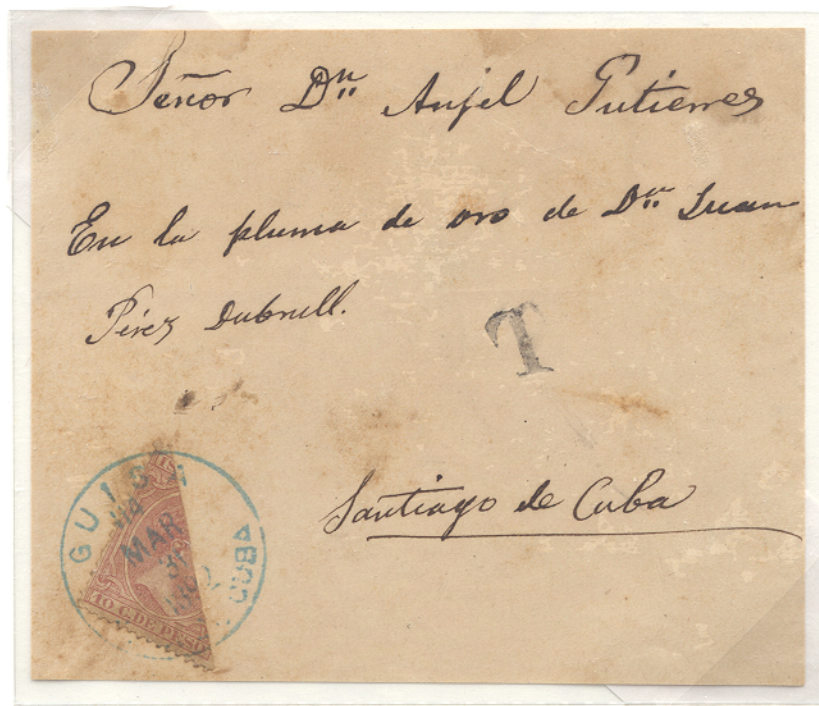 Señor Dn Anjel Gutierrez
En la pluma de oro de Dn Juan
Pérez Dubrull.
T
Santiago de Cuba
GUISA
MAR
CUBA
10 C. DE PESO